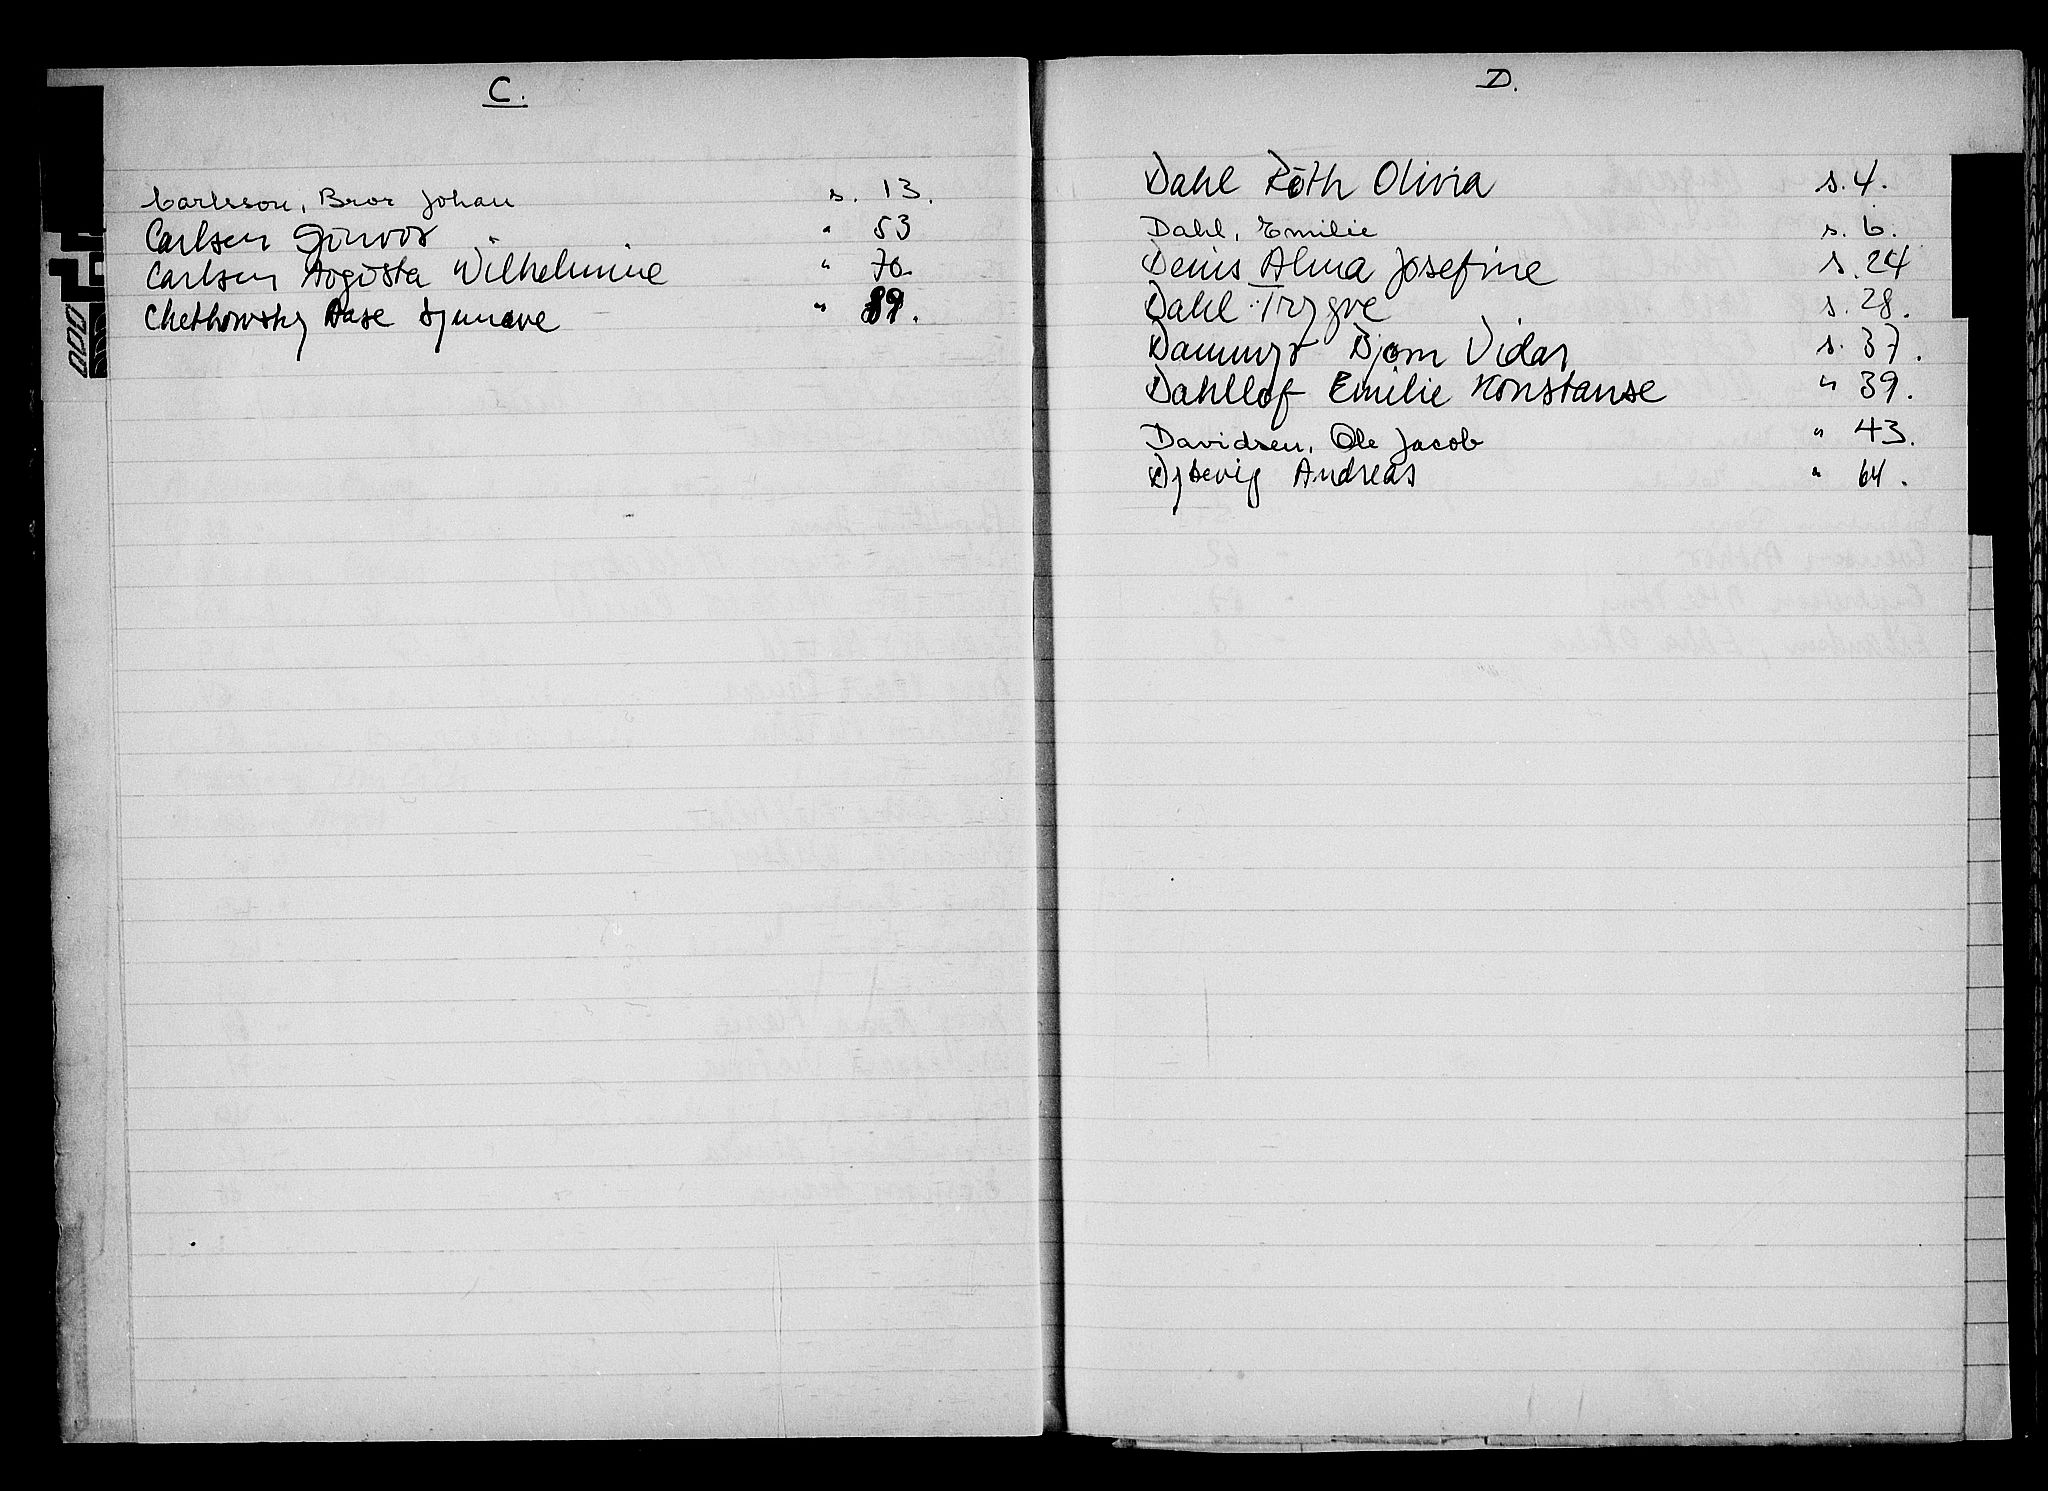 C.
Carlsson, Bror Johan s. 13.
Carlsen Gunvor " 53
Carlsen Augusta Wilhelmine " 70.
Chetkowsky Aase Synnøve " 89.
D.
Dahl Ruth Olivia s. 4.
Dahl, Emilie s. 6.
Denis Alma Josefine s. 24
Dahl Trygve s. 28.
Dammyr Bjørn Vidar s. 37.
Dahlløf Emilie Konstanse " 39.
Davidsen, Ole Jacob " 43.
Andreas " 64.